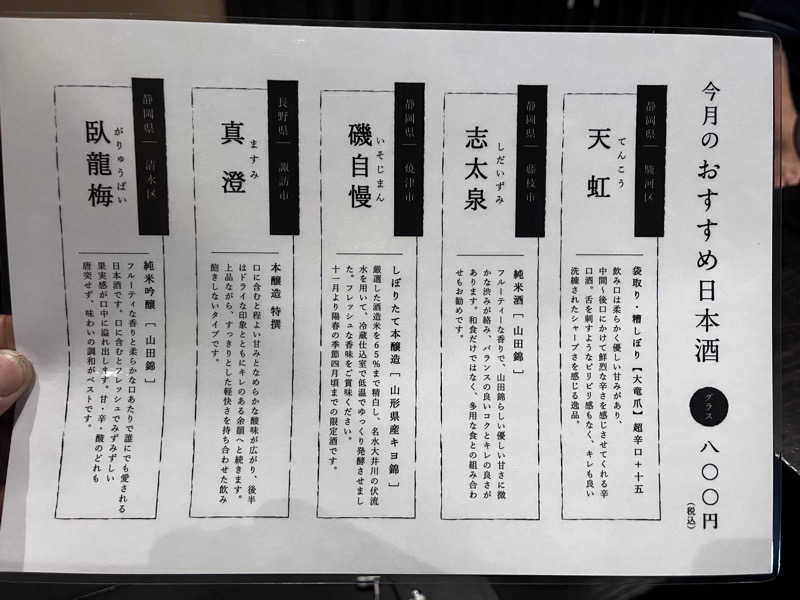 今月のおすすめ日本酒
グラス
八〇〇円
(税込)
静岡県 駿河区
てんこう
天虹
袋取り・槽しぼり【大竜爪】超辛口+十五
飲み口は柔らかく優しい甘みがあり、
中間~後口にかけて鮮烈な辛さを感じさせてくれる辛
口酒。舌を刺すようなピリピリ感もなく、キレも良い
洗練されたシャープさを感じる逸品。
静岡県 藤枝市
しだいずみ
志太泉
純米酒[山田錦]
フルーティーな香りで、山田錦らしい優しい甘さに微
かな渋みが絡み、バランスの良いコクとキレの良さが
あります。和食だけではなく、多用な食との組み合わ
せもお勧めです。
静岡県 焼津市
いそじまん
磯自慢
しぼりたて本醸造[山形県産キヨ錦]
厳選した酒造米を65%まで精白し、名水大井川の伏流
水を用いて、冷蔵仕込室で低温でゆっくり発酵させまし
た。フレッシュな香味をご賞味ください。
十一月より陽春の季節四月頃までの限定酒です。
長野県 諏訪市
ますみ
真澄
本醸造 特撰
口に含むと程よい甘みとなめらかな酸味が広がり、後半
はドライな印象とともにキレのある余韻へと続きます。
上品ながら、すっきりとした軽快さを持ち合わせた飲み
飽きしないタイプです。
静岡県 清水区
がりゅうばい
臥龍梅
純米吟醸[山田錦]
フルーティな香りと柔らかな口あたりで誰にでも愛される
日本酒です。口に含むとフレッシュでみずみずしい
果実感が口中に溢れ出します。甘・辛・酸のどれも
唐突せず、味わいの調和がベストです。